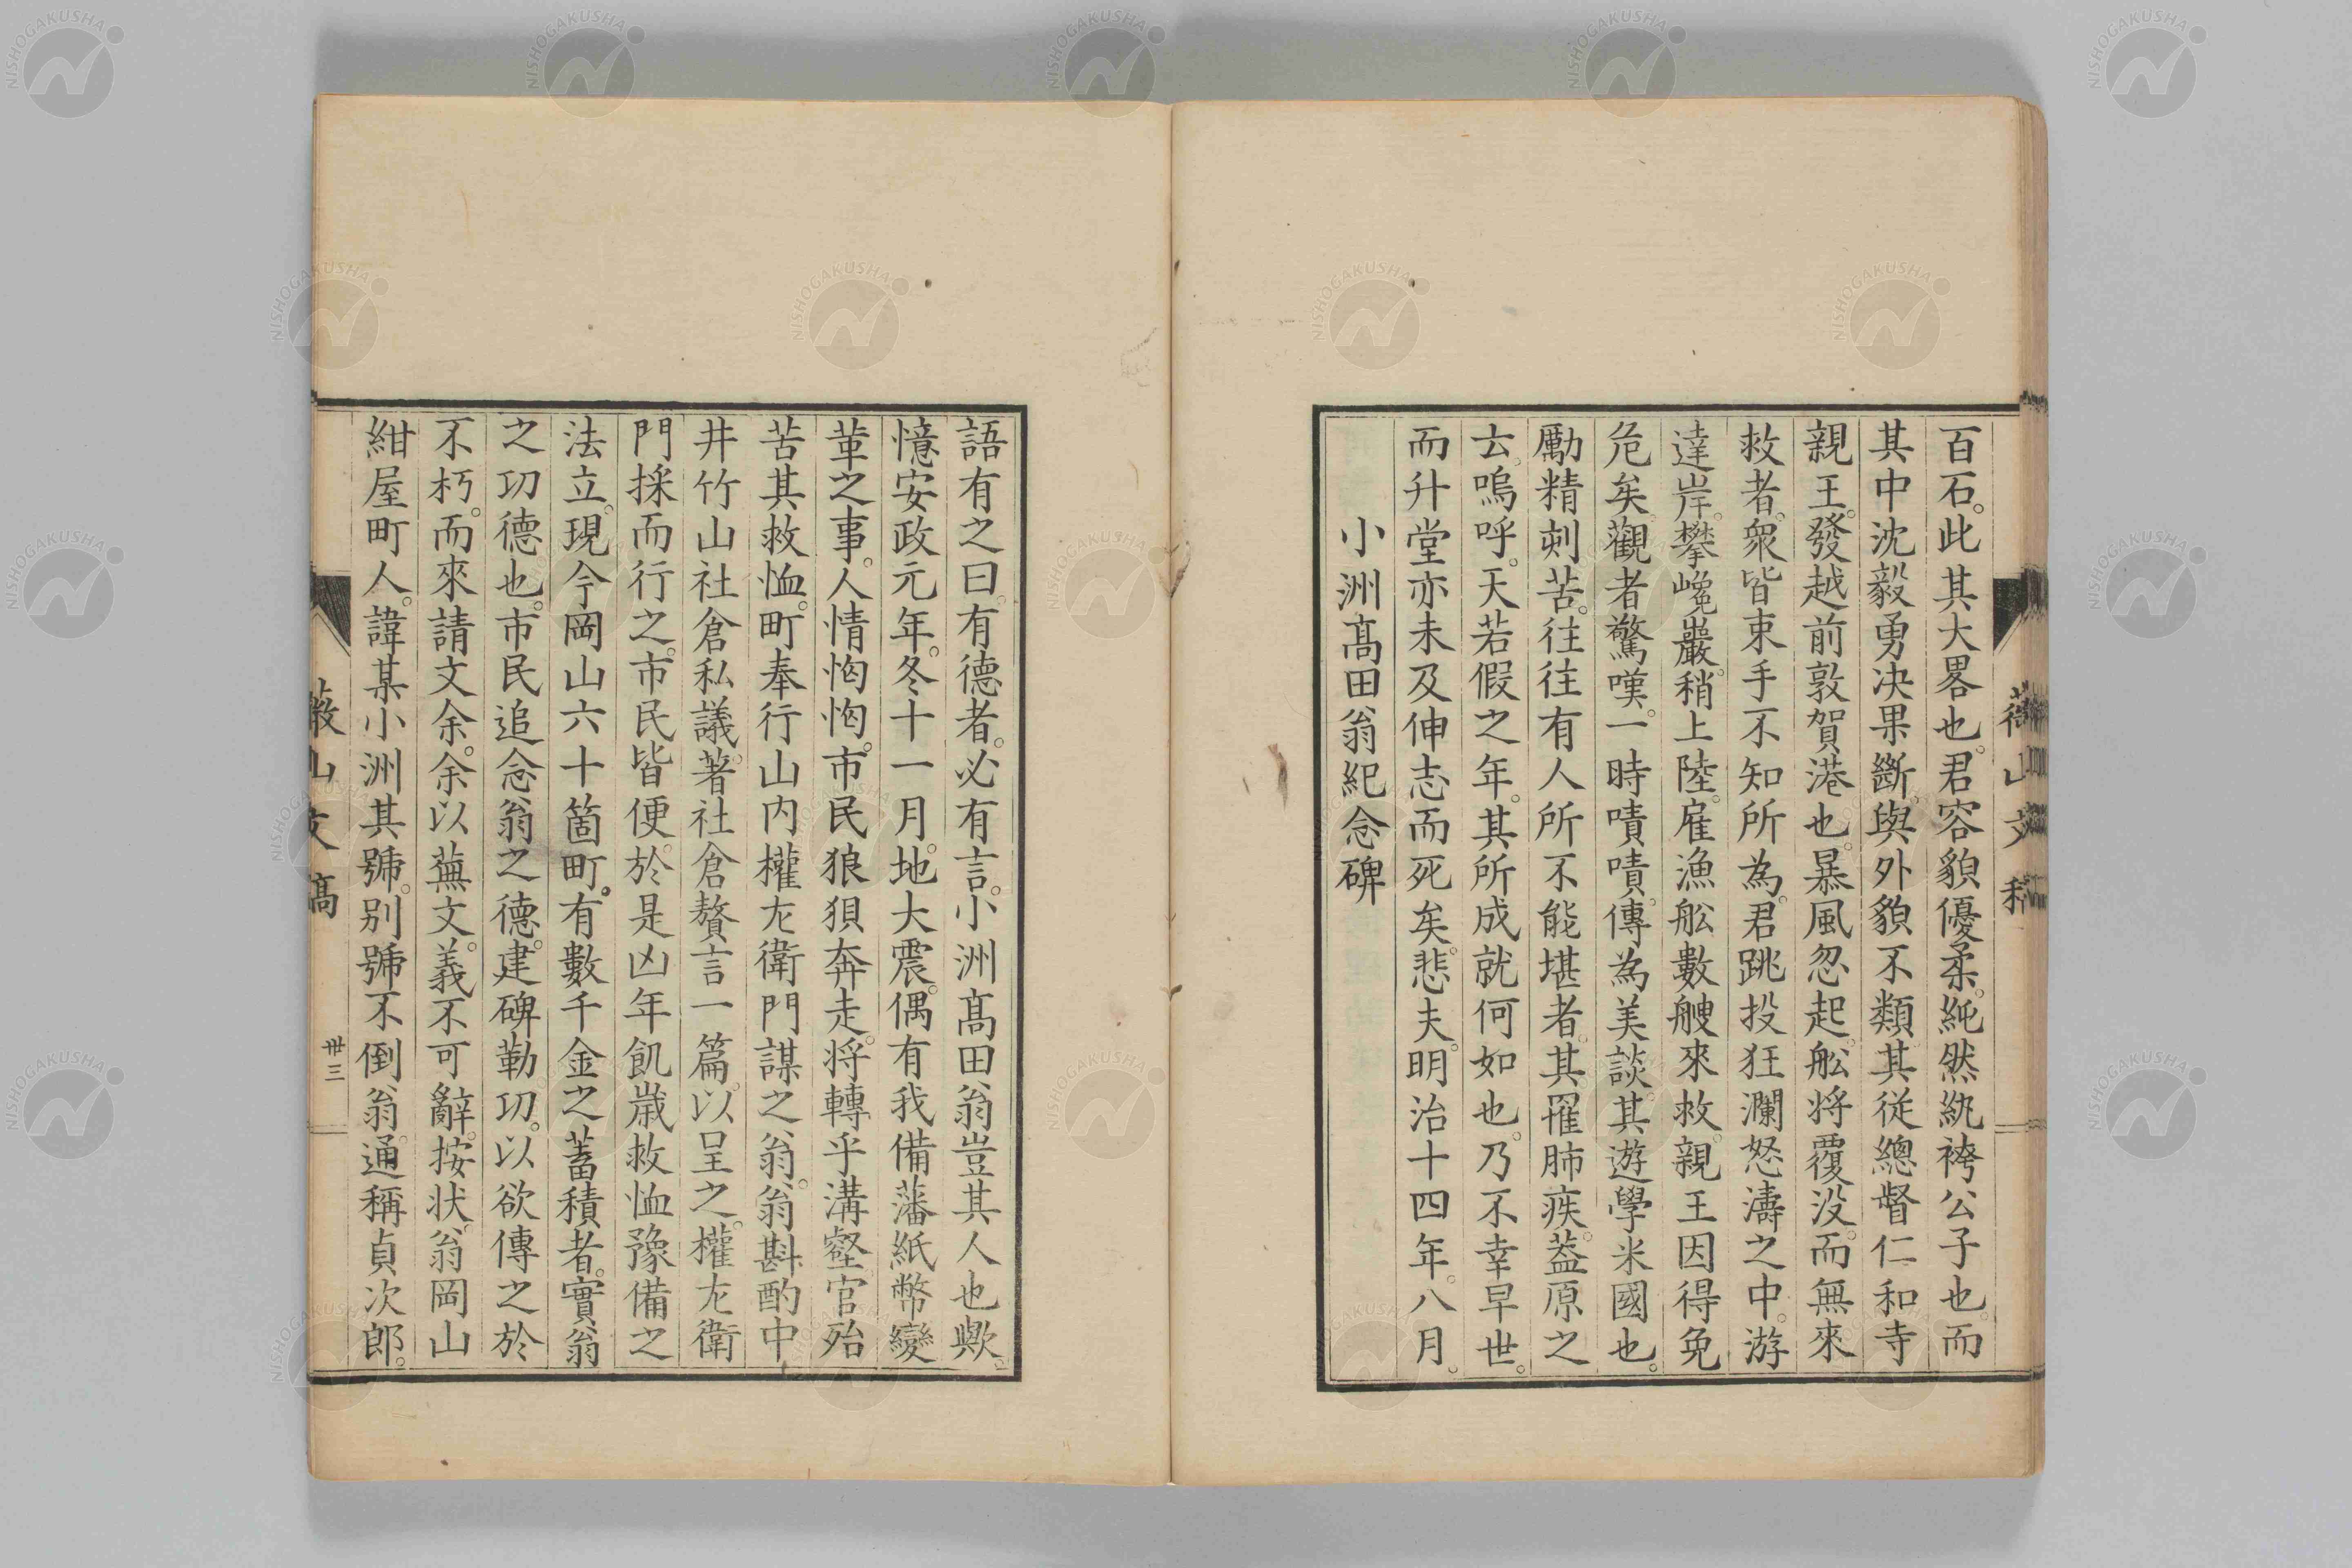 百石。此其大畧也。君容貌優柔。純然紈袴公子也。而
其中沈毅勇决果斷。與外貌不類。其從總督仁和寺
親王。發越前敦賀港也。暴風忽起。舩将覆没。而無來
救者。衆皆束手不知所為。君跳投狂瀾怒濤之中。游
達岸。攀巉巖。稍上陸。雇漁舩數艘來救。親王因得免
危矣。觀者驚嘆。一時嘖嘖。傳為美談。其遊學米國也。
勵精刻苦。往往有人所不能堪者。其罹肺疾。葢原之
云。嗚呼。天若假之年。其所成就何如也。乃不幸早世。
而升堂亦未及伸志而死矣。悲夫。明治十四年。八月。
小洲髙田翁紀念碑
語有之曰。有德者。必有言。小洲髙田翁豈其人也歟。
憶安政元年。冬十一月。地大震。偶有我備藩紙幣變
革之事。人情恟恟。市民狼狽奔走。将轉乎溝壑。官殆
苦其救恤。町奉行山内權左衛門謀之翁。翁斟酌中
井竹山社倉私議。著社倉贅言一篇。以呈之。權左衛
門採而行之。市民皆便。於是凶年飢歳救恤豫備之
法立。現今岡山六十箇町。有數千金之蓄積者。實翁
之功德也。市民追念翁之德。建碑勒功。以欲傳之於
不朽。而來請文余。余以蕪文。義不可辭。按状。翁岡山
紺屋町人。諱某小洲其號。别號不倒翁。通稱貞次郎。
薇山文稿
卅三